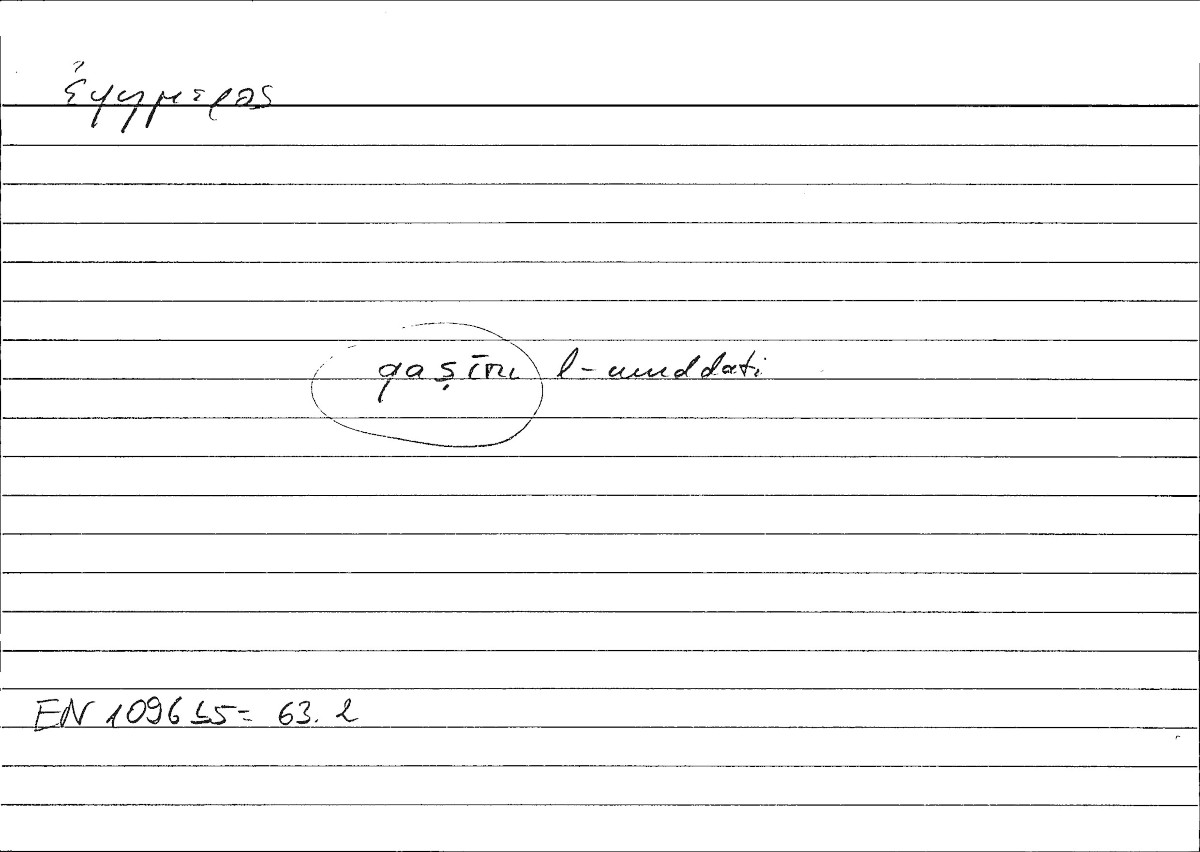 ἐφήμερος
qaṣīru l-muddati
EN 1096 b5 = 63. 2